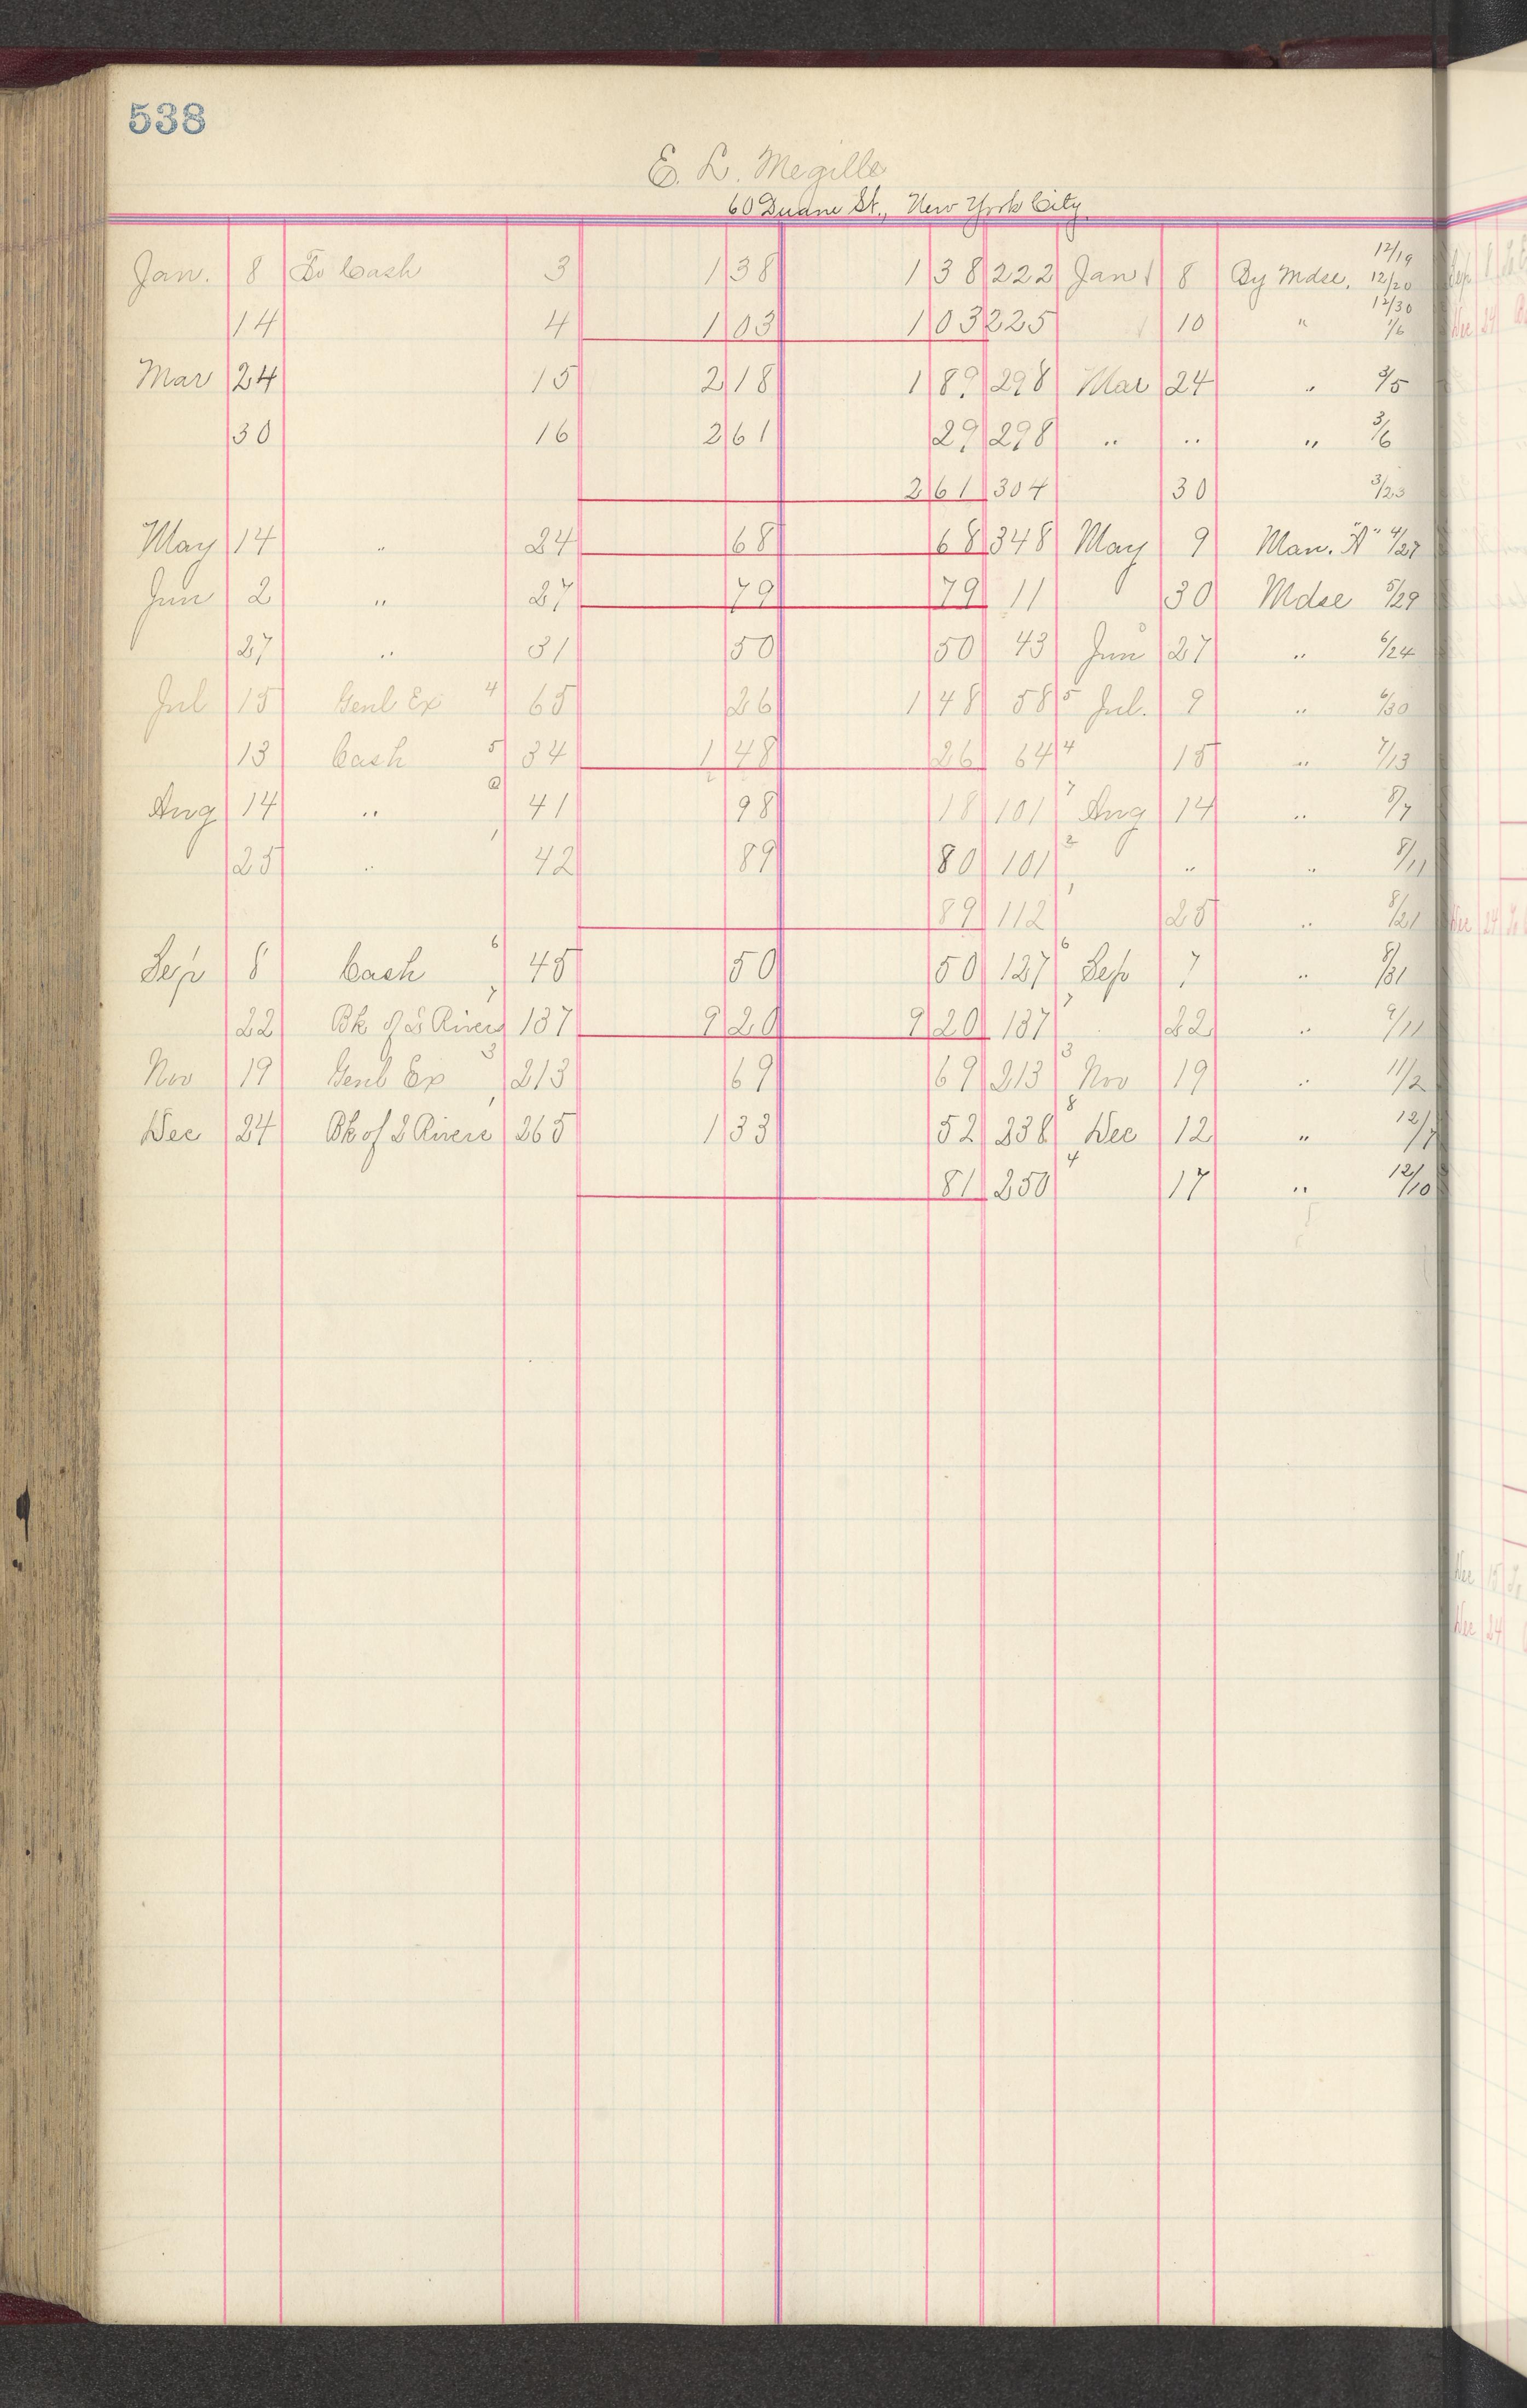 538
E. L. Megille
60 Duane St., New York City
Jan. 8 To Cash 3 1 38 1 38 222 Jan 8 By Mdse. 12/19 12/20
14 4 1 03 1 03 225 10 " 12/30 1/6
Mar 24 15 2 18 1 89 298 Mar 24 " 3/5
30 16 2 61 29 298 " " " 3/6
2 61 304 30 3/23
May 14 " 24 68 68 348 May 9 Man. "A" 4/27
Jun 2 " 27 79 79 11 30 Mdse 5/29
27 " 31 50 50 43 Jun 27 " 6/24
Jul 15 Genl Ex 4 65 26 1 48 58 5 Jul. 9 " 6/30
13 Cash 5 34 1 48 26 64 4 15 " 7/13
Aug 14 " 41 98 18 101 7 Aug 14 " 8/7
25 " 1 42 89 80 101 2 " " 8/11
89 112 1 25 " 8/21
Sep 8 Cash 6 45 50 50 127 6 Sep 7 " 8/31
22 Bk of 2 Rivers 7 137 9 20 9 20 137 7 22 " 9/11
Nov 19 Genl Ex 3 213 69 69 213 3 Nov 19 " 11/2
Dec 24 Bk of 2 Rivers 1 265 1 33 52 238 8 Dec 12 " 12/7
81 250 4 17 " 12/10